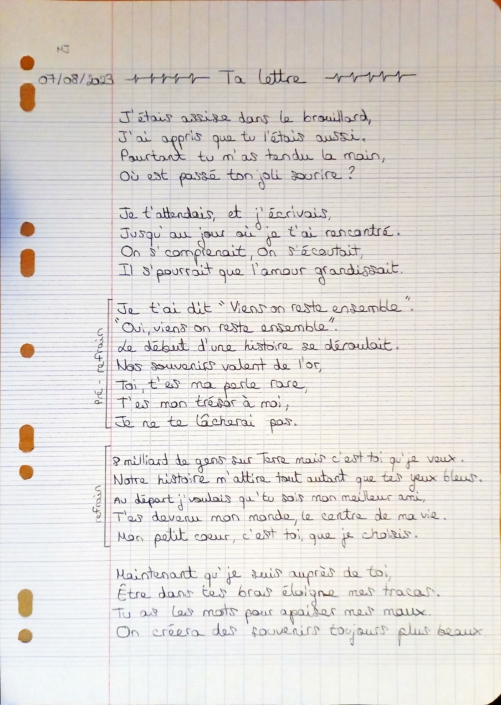 MJ
07/08/2023 Ta lettre
J'étais assise dans le brouillard,
J'ai appris que tu l'étais aussi.
Pourtant tu m'as tendu la main,
Où est passé ton joli sourire ?
Je t'attendais, et j'écrivais,
Jusqu'au jour où je t'ai rencontré.
On s'comprenait, On s'écoutait,
Il s'pourrait que l'amour grandissait.
pré-refrain
Je t'ai dit "Viens on reste ensemble".
"Oui, viens on reste ensemble".
Le début d'une histoire se déroulait.
Nos souvenirs valent de l'or,
Toi, t'es ma perle rare,
T'es mon trésor à moi,
Je ne te lâcherai pas.
refrain
8 milliard de gens sur Terre mais c'est toi qu'je veux.
Notre histoire m'attire tout autant que tes yeux bleus.
Au départ j'voulais qu'tu sois mon meilleur ami,
T'es devenu mon monde, le centre de ma vie.
Mon petit coeur, c'est toi, que je choisis.
Maintenant qu'je suis auprès de toi,
Être dans tes bras éloigne mes tracas.
Tu as les mots pour apaiser mes maux.
On créera des souvenirs toujours plus beaux